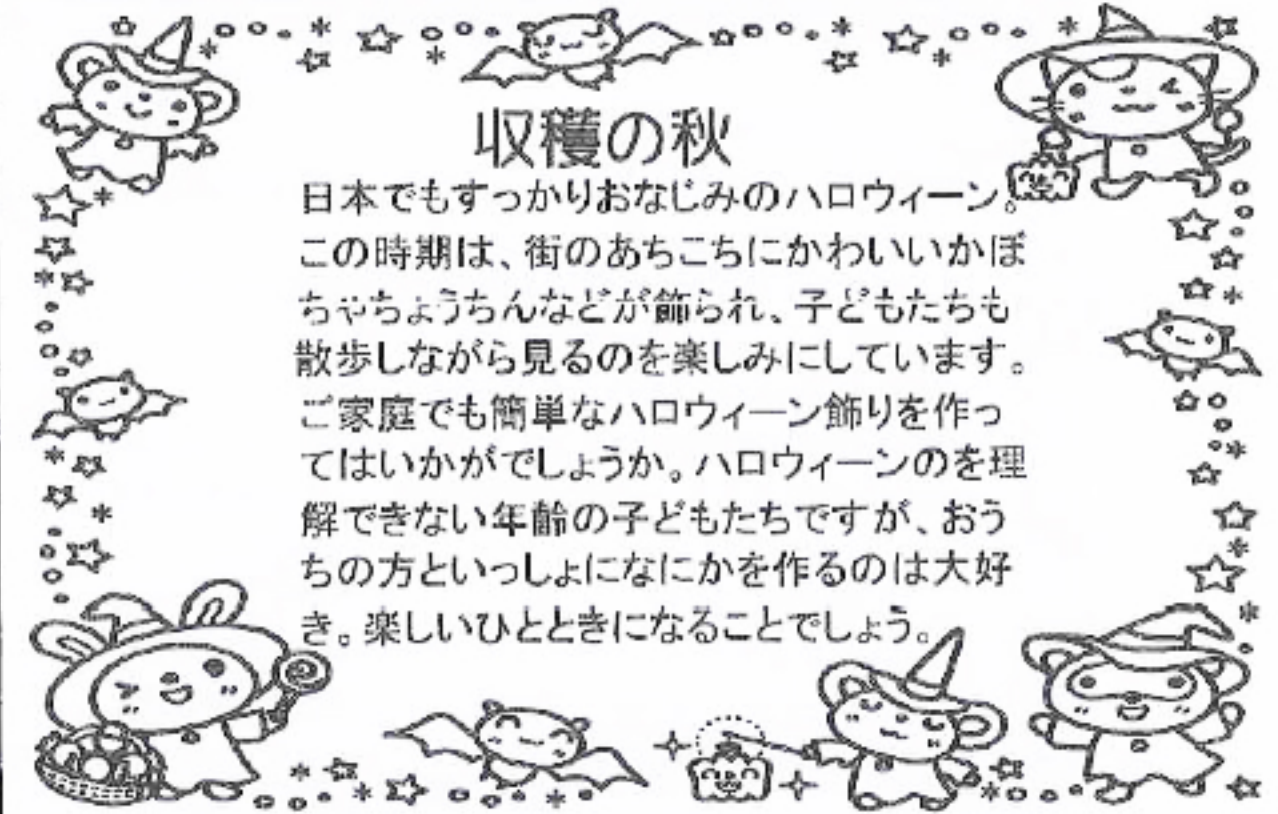 収穫の秋
日本でもすっかりおなじみのハロウィーン。
この時期は、街のあちこちにかわいいかぼ
ちゃちょうちんなどが飾られ、子どもたちも
散歩しながら見るのを楽しみにしています。
ご家庭でも簡単なハロウィーン飾りを作っ
てはいかがでしょうか。ハロウィーンのを理
解できない年齢の子どもたちですが、おう
ちの方といっしょになにかを作るのは大好
き。楽しいひとときになることでしょう。